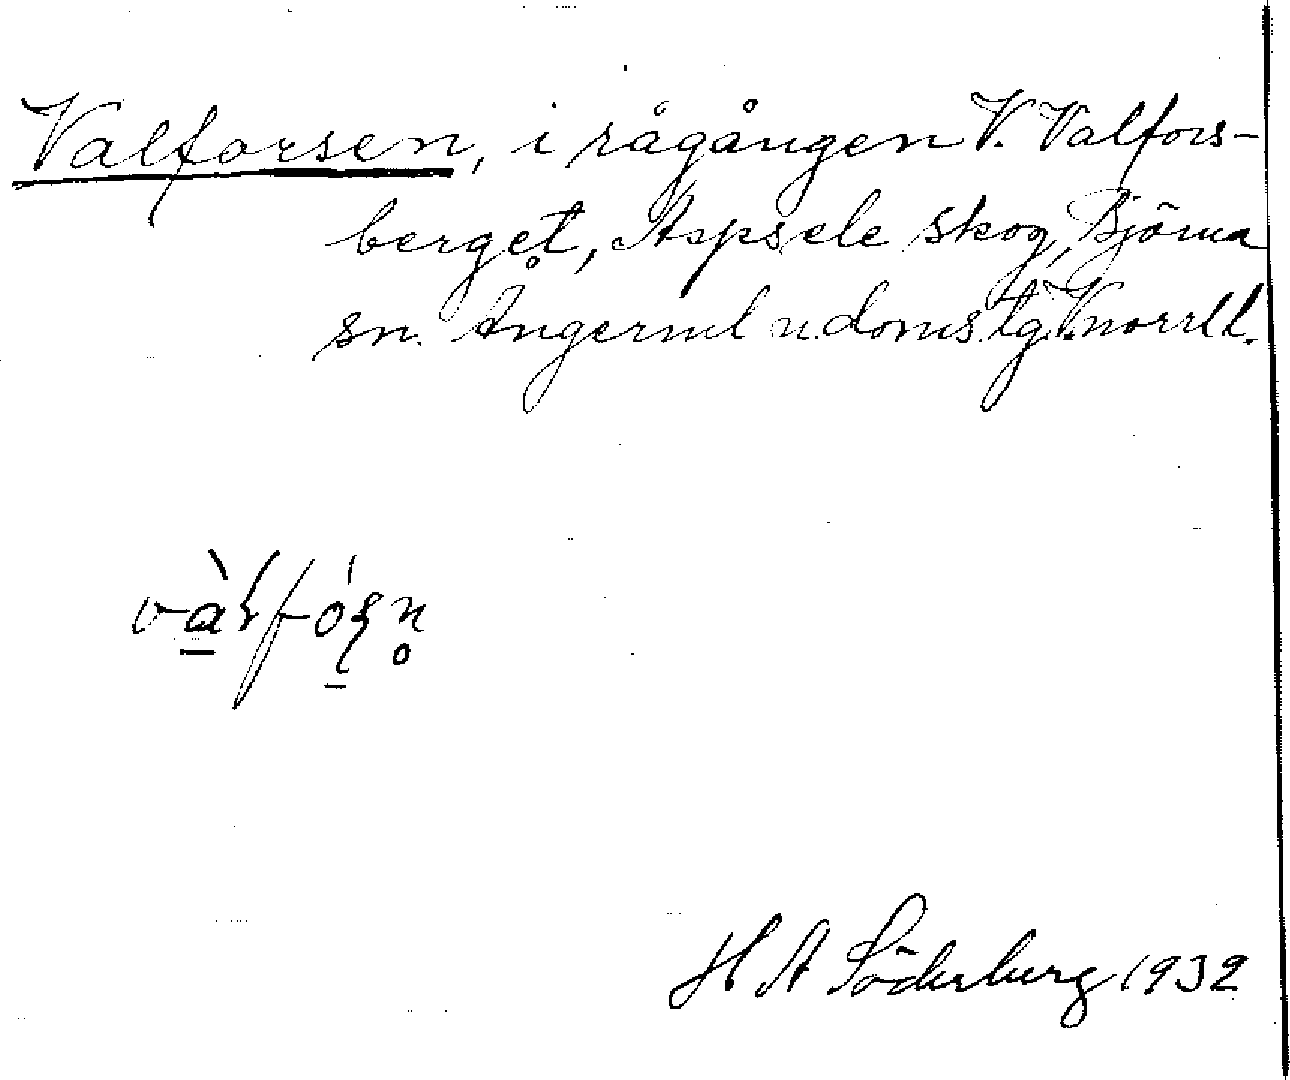 Valforsen, i rågången V. Valfors-
berget, Aspsele skog, Björna
sn. Ångerml n. domstg V.norrl.
H A Söderberg 1932